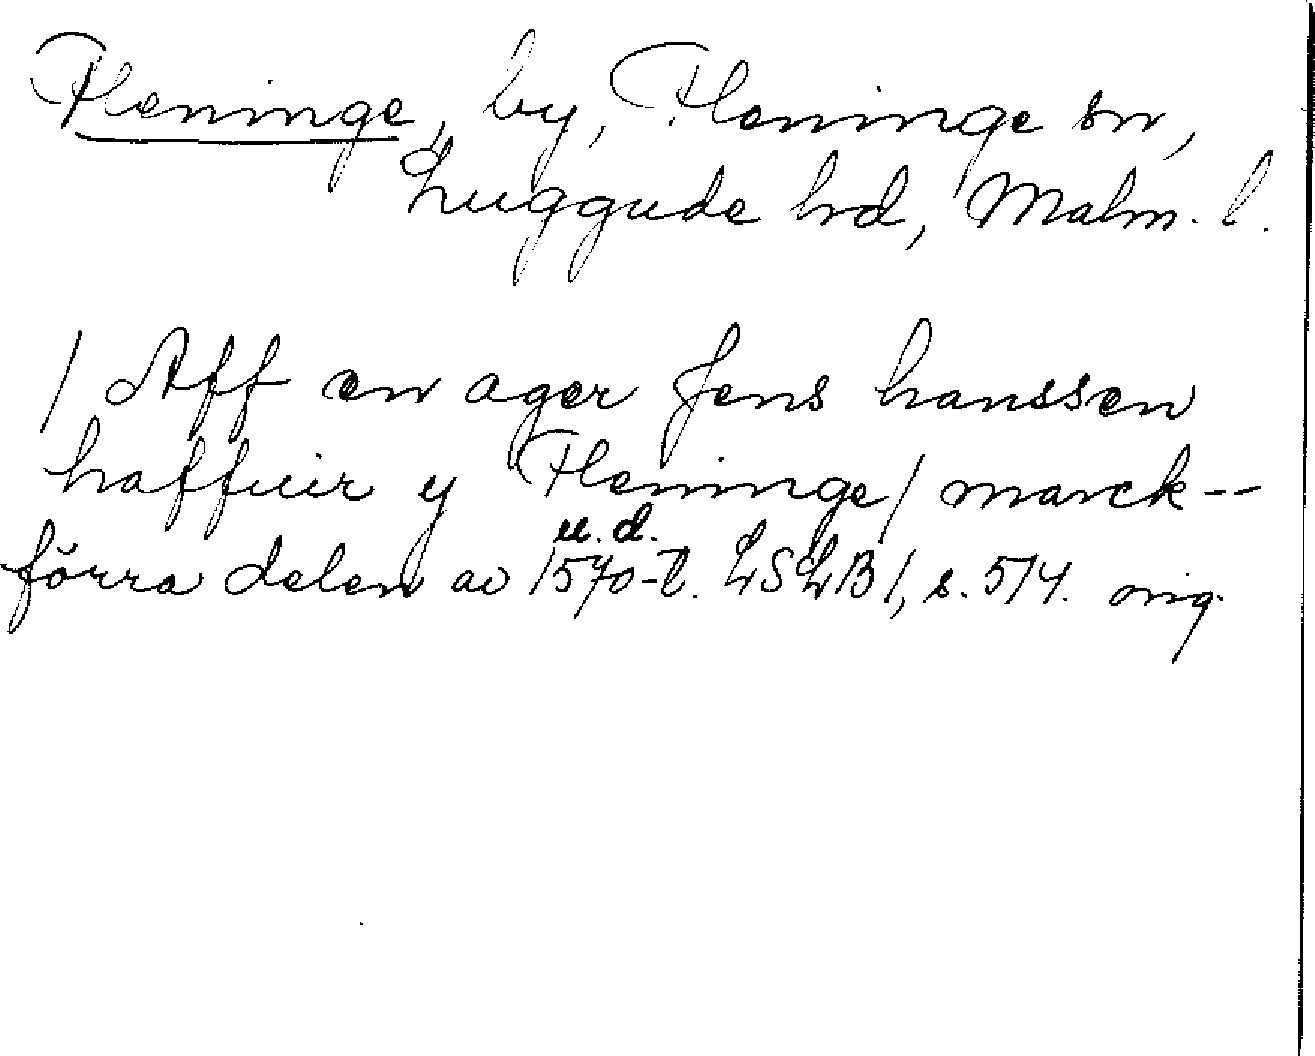 Fleninge, by, Fleninge sn,
Luggude hd, Malm. l.
/ Aff en ager Jens hanssen
haffuir y Fleninge / marck --
u. d.
förra delen av 1570-t. LSLB 1, s. 514. orig.